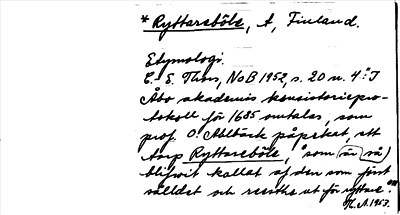 * Ryttareböle, A, Finland.
Etymologi.
C.-E. Thors, NoB 1952, s. 20 n. 4: "I
Åbo akademis konsistoriepro-
tokoll för 1685 omtalas, som
prof. O. Ahlbäck påpekat, ett
torp Ryttareböle, "som (är så)
blifwit kallat af den som först
välldet och ressthe ut för ryttare"."
H. A. 1953.